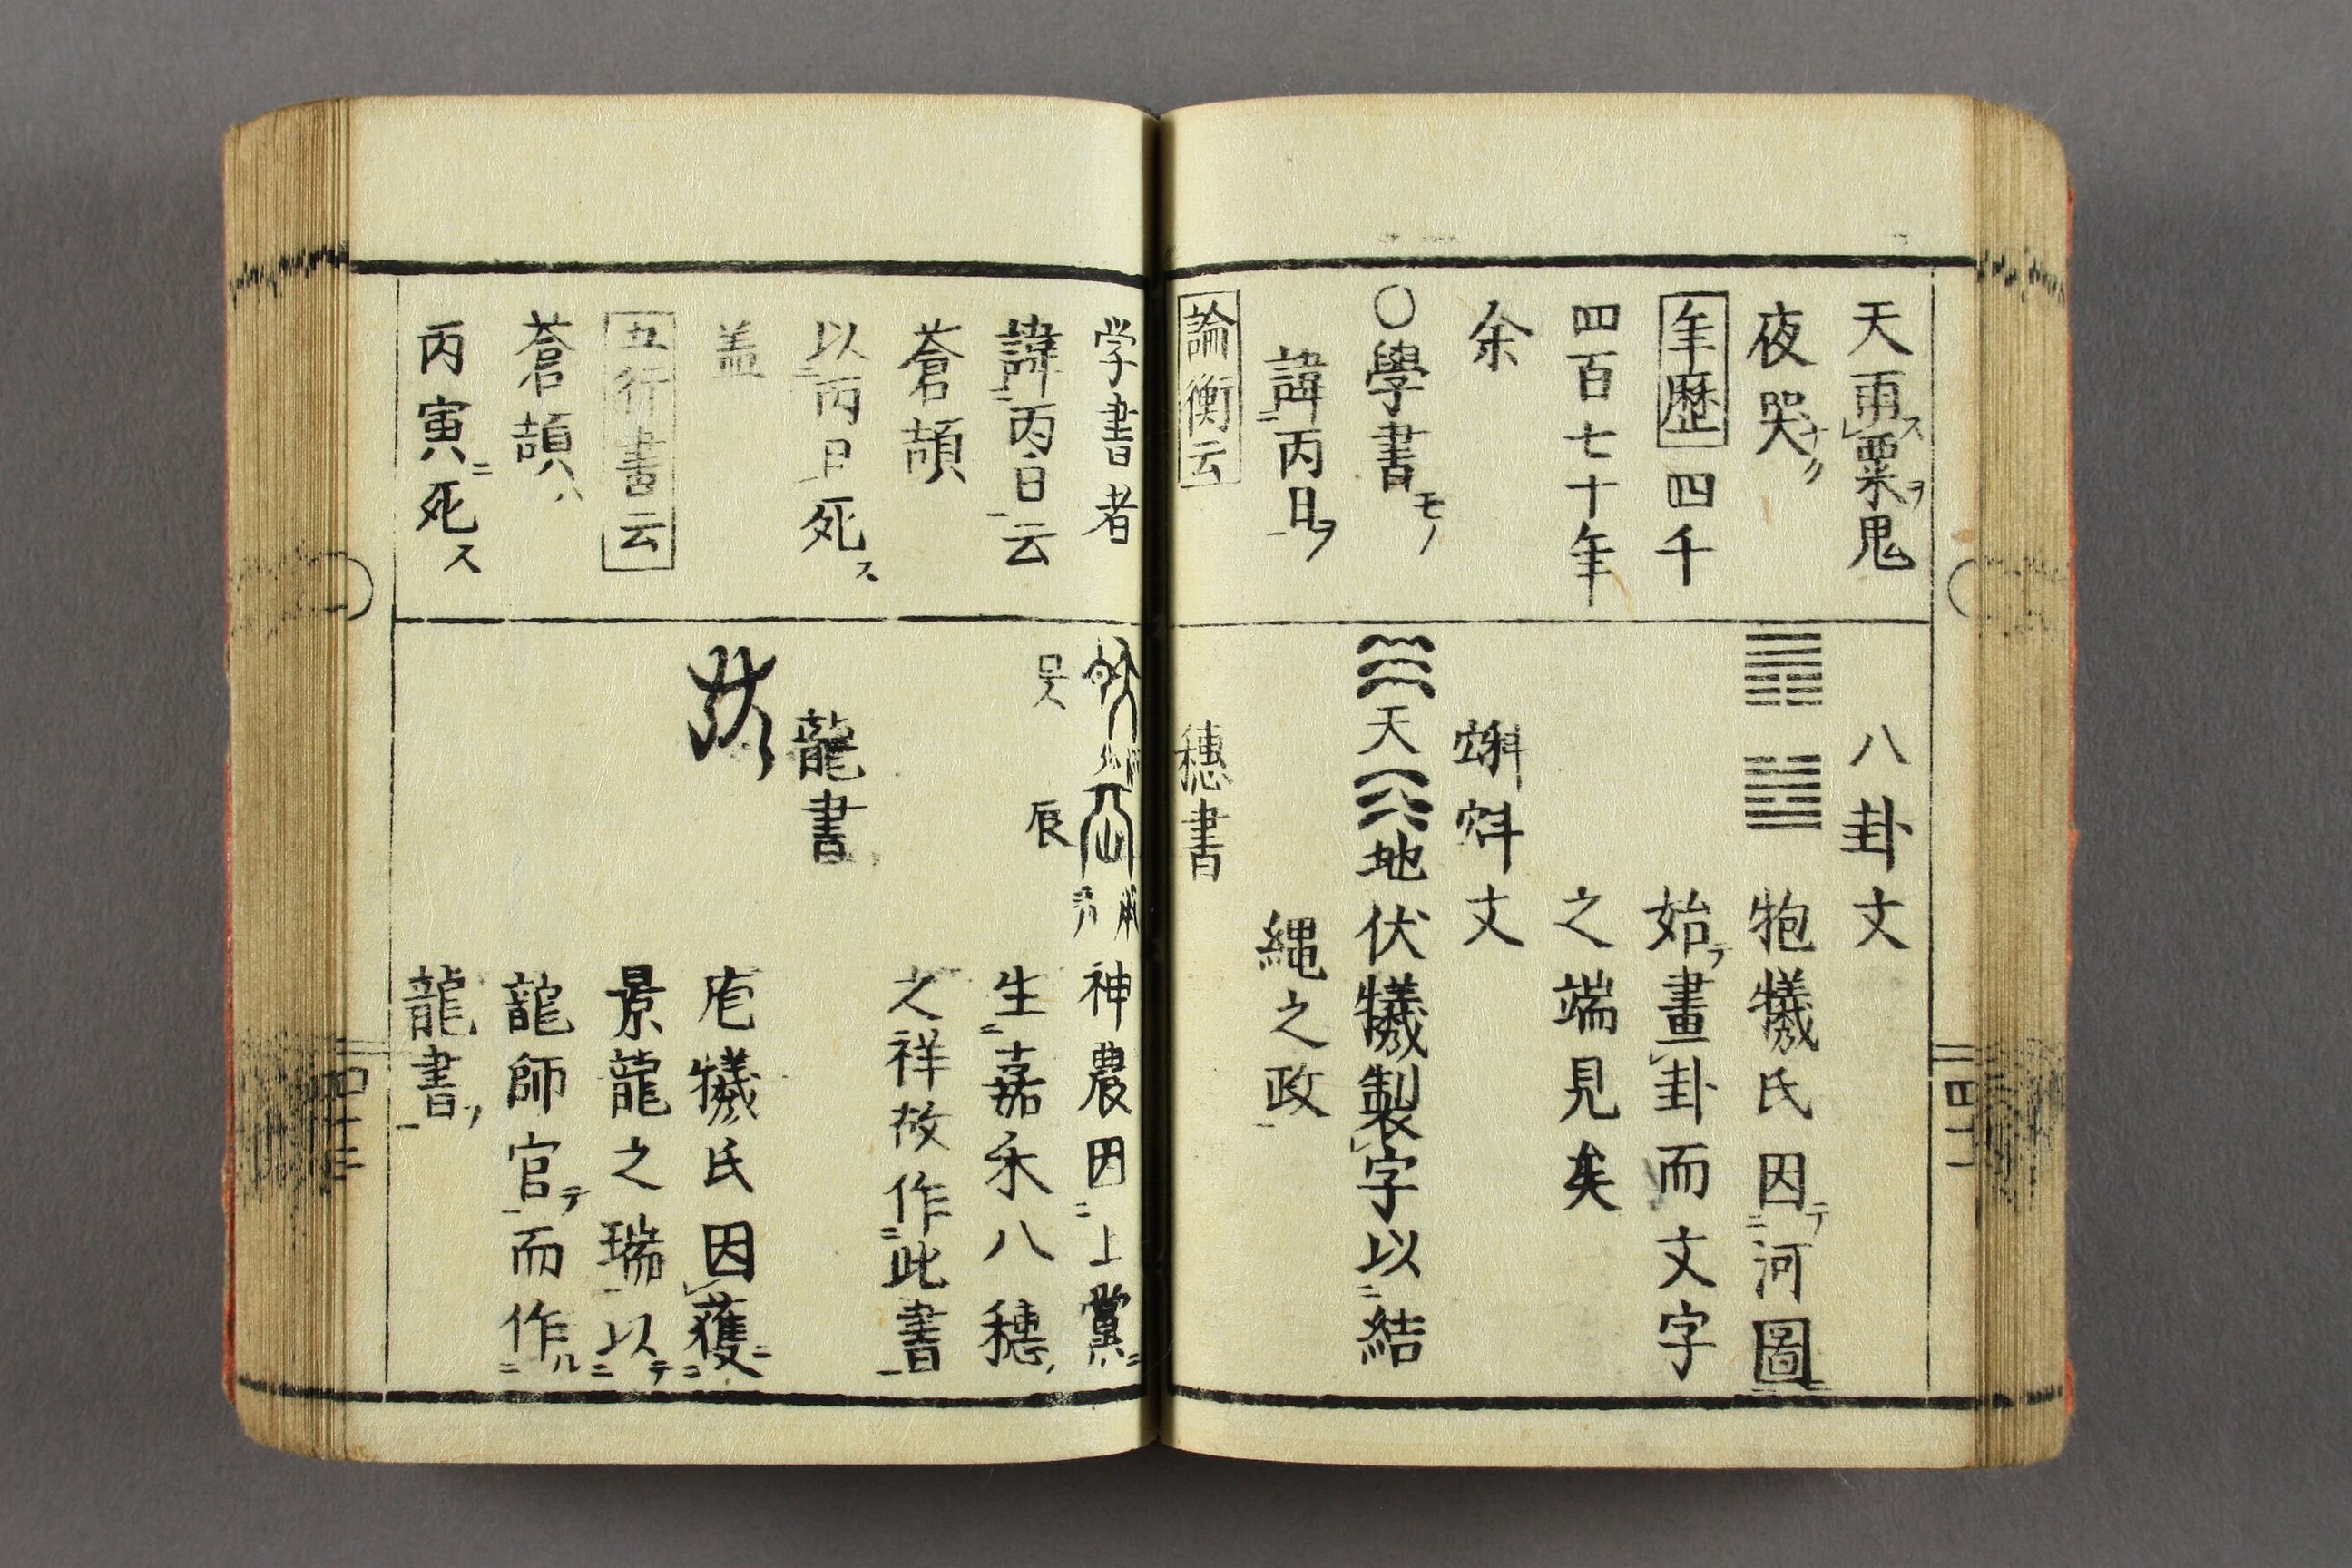 天雨ス粟ヲ鬼
夜哭ナク
年歴四千
四百七十年
余
○學書モノ
諱丙日ヲ
論衡云
八卦文
䷋ 犠氏因テ河圖
始テ畫卦而文字
之端見矣
蝌蚪文
天 地伏犠製字以結
縄之政
穗書
四十二
学書者
諱丙日云
蒼頡
以丙日死ス
盖
五行書云
蒼頡ハ
丙寅ニ死ス
神農因上黨ニ
辰 生嘉禾八穗
之祥故作此書
龍書
庖犠氏因獲
景龍之瑞以テ
龍師官テ而作ル
龍書ヲ
四十三